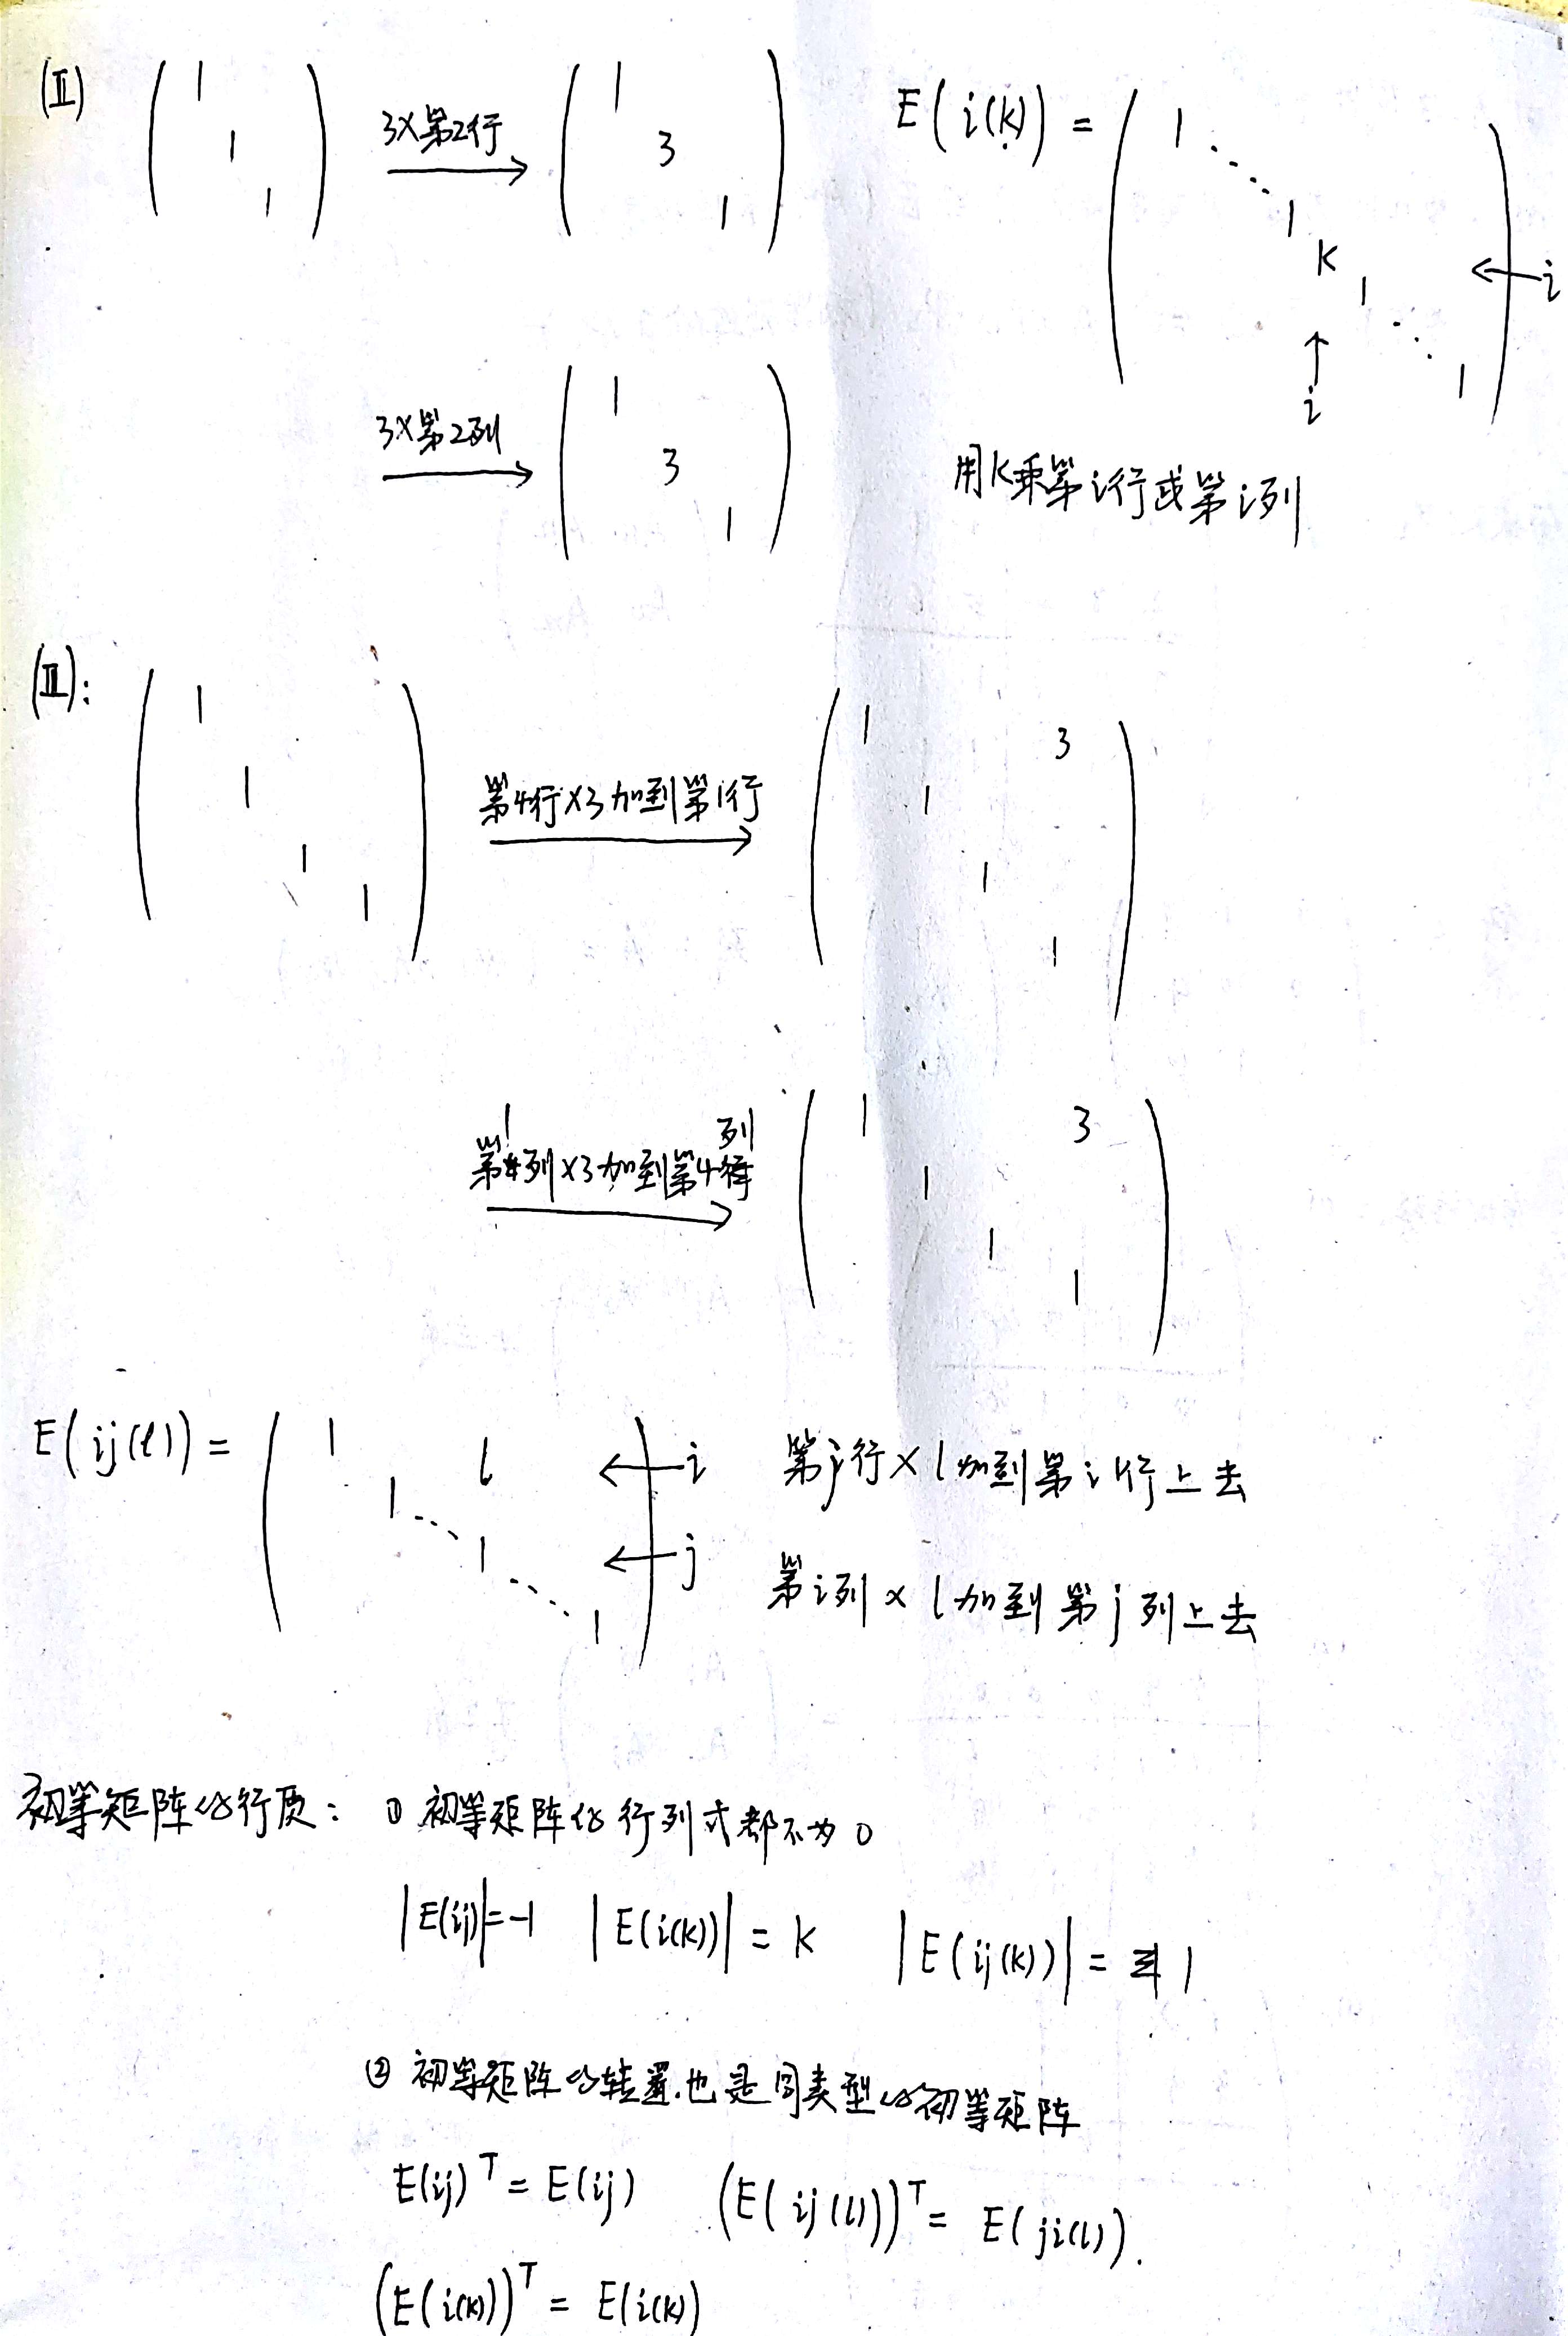 (Ⅱ) ( 1 1 1 ) 3×第2行 → ( 1 3 1 ) E(i(k)) = ( 1 ⋱ 1 k 1 ⋱ 1 ) ← i
↑
i
3×第2列 → ( 1 3 1 )
用k乘第i行或第i列
(Ⅲ): ( 1 1 1 1 ) 第4行×3加到第1行 → ( 1 3
1
1
1 )
第1列×3加到第4列 → ( 1 3
1
1
1 )
E(ij(l)) = ( 1 l ← i 第j行×l加到第i行上去
1 ⋱ 1 ← j
⋱ 1 ) 第i列×l加到第j列上去
初等矩阵的行质: ① 初等矩阵的行列式都不为0
|E(ij)|=-1 |E(i(k))| = k |E(ij(k))| = 1
② 初等矩阵的转置.也是同类型的初等矩阵
E(ij)ᵀ = E(ij) (E(ij(l)))ᵀ = E(ji(l)).
(E(i(k)))ᵀ = E(i(k))